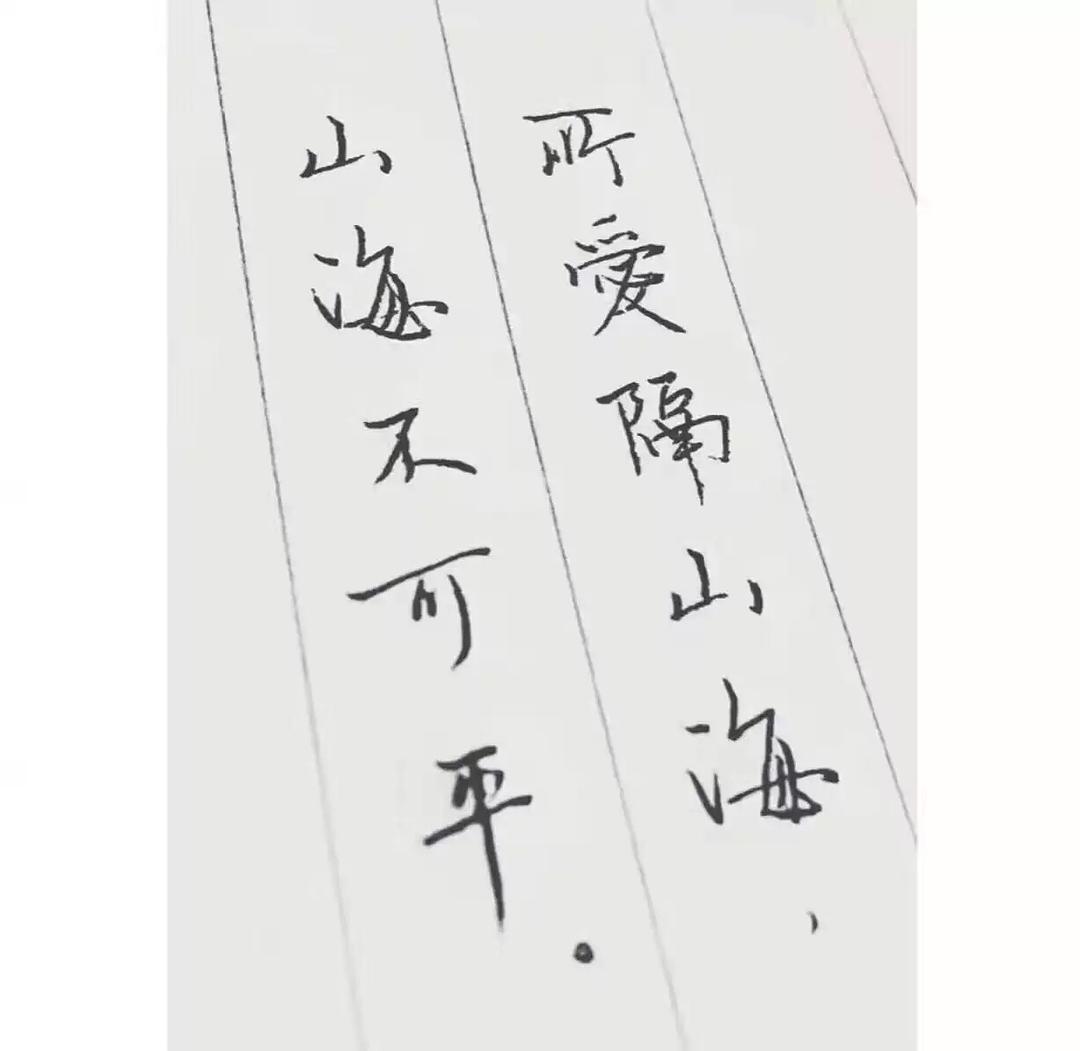 所愛隔山海，
山海不可平.